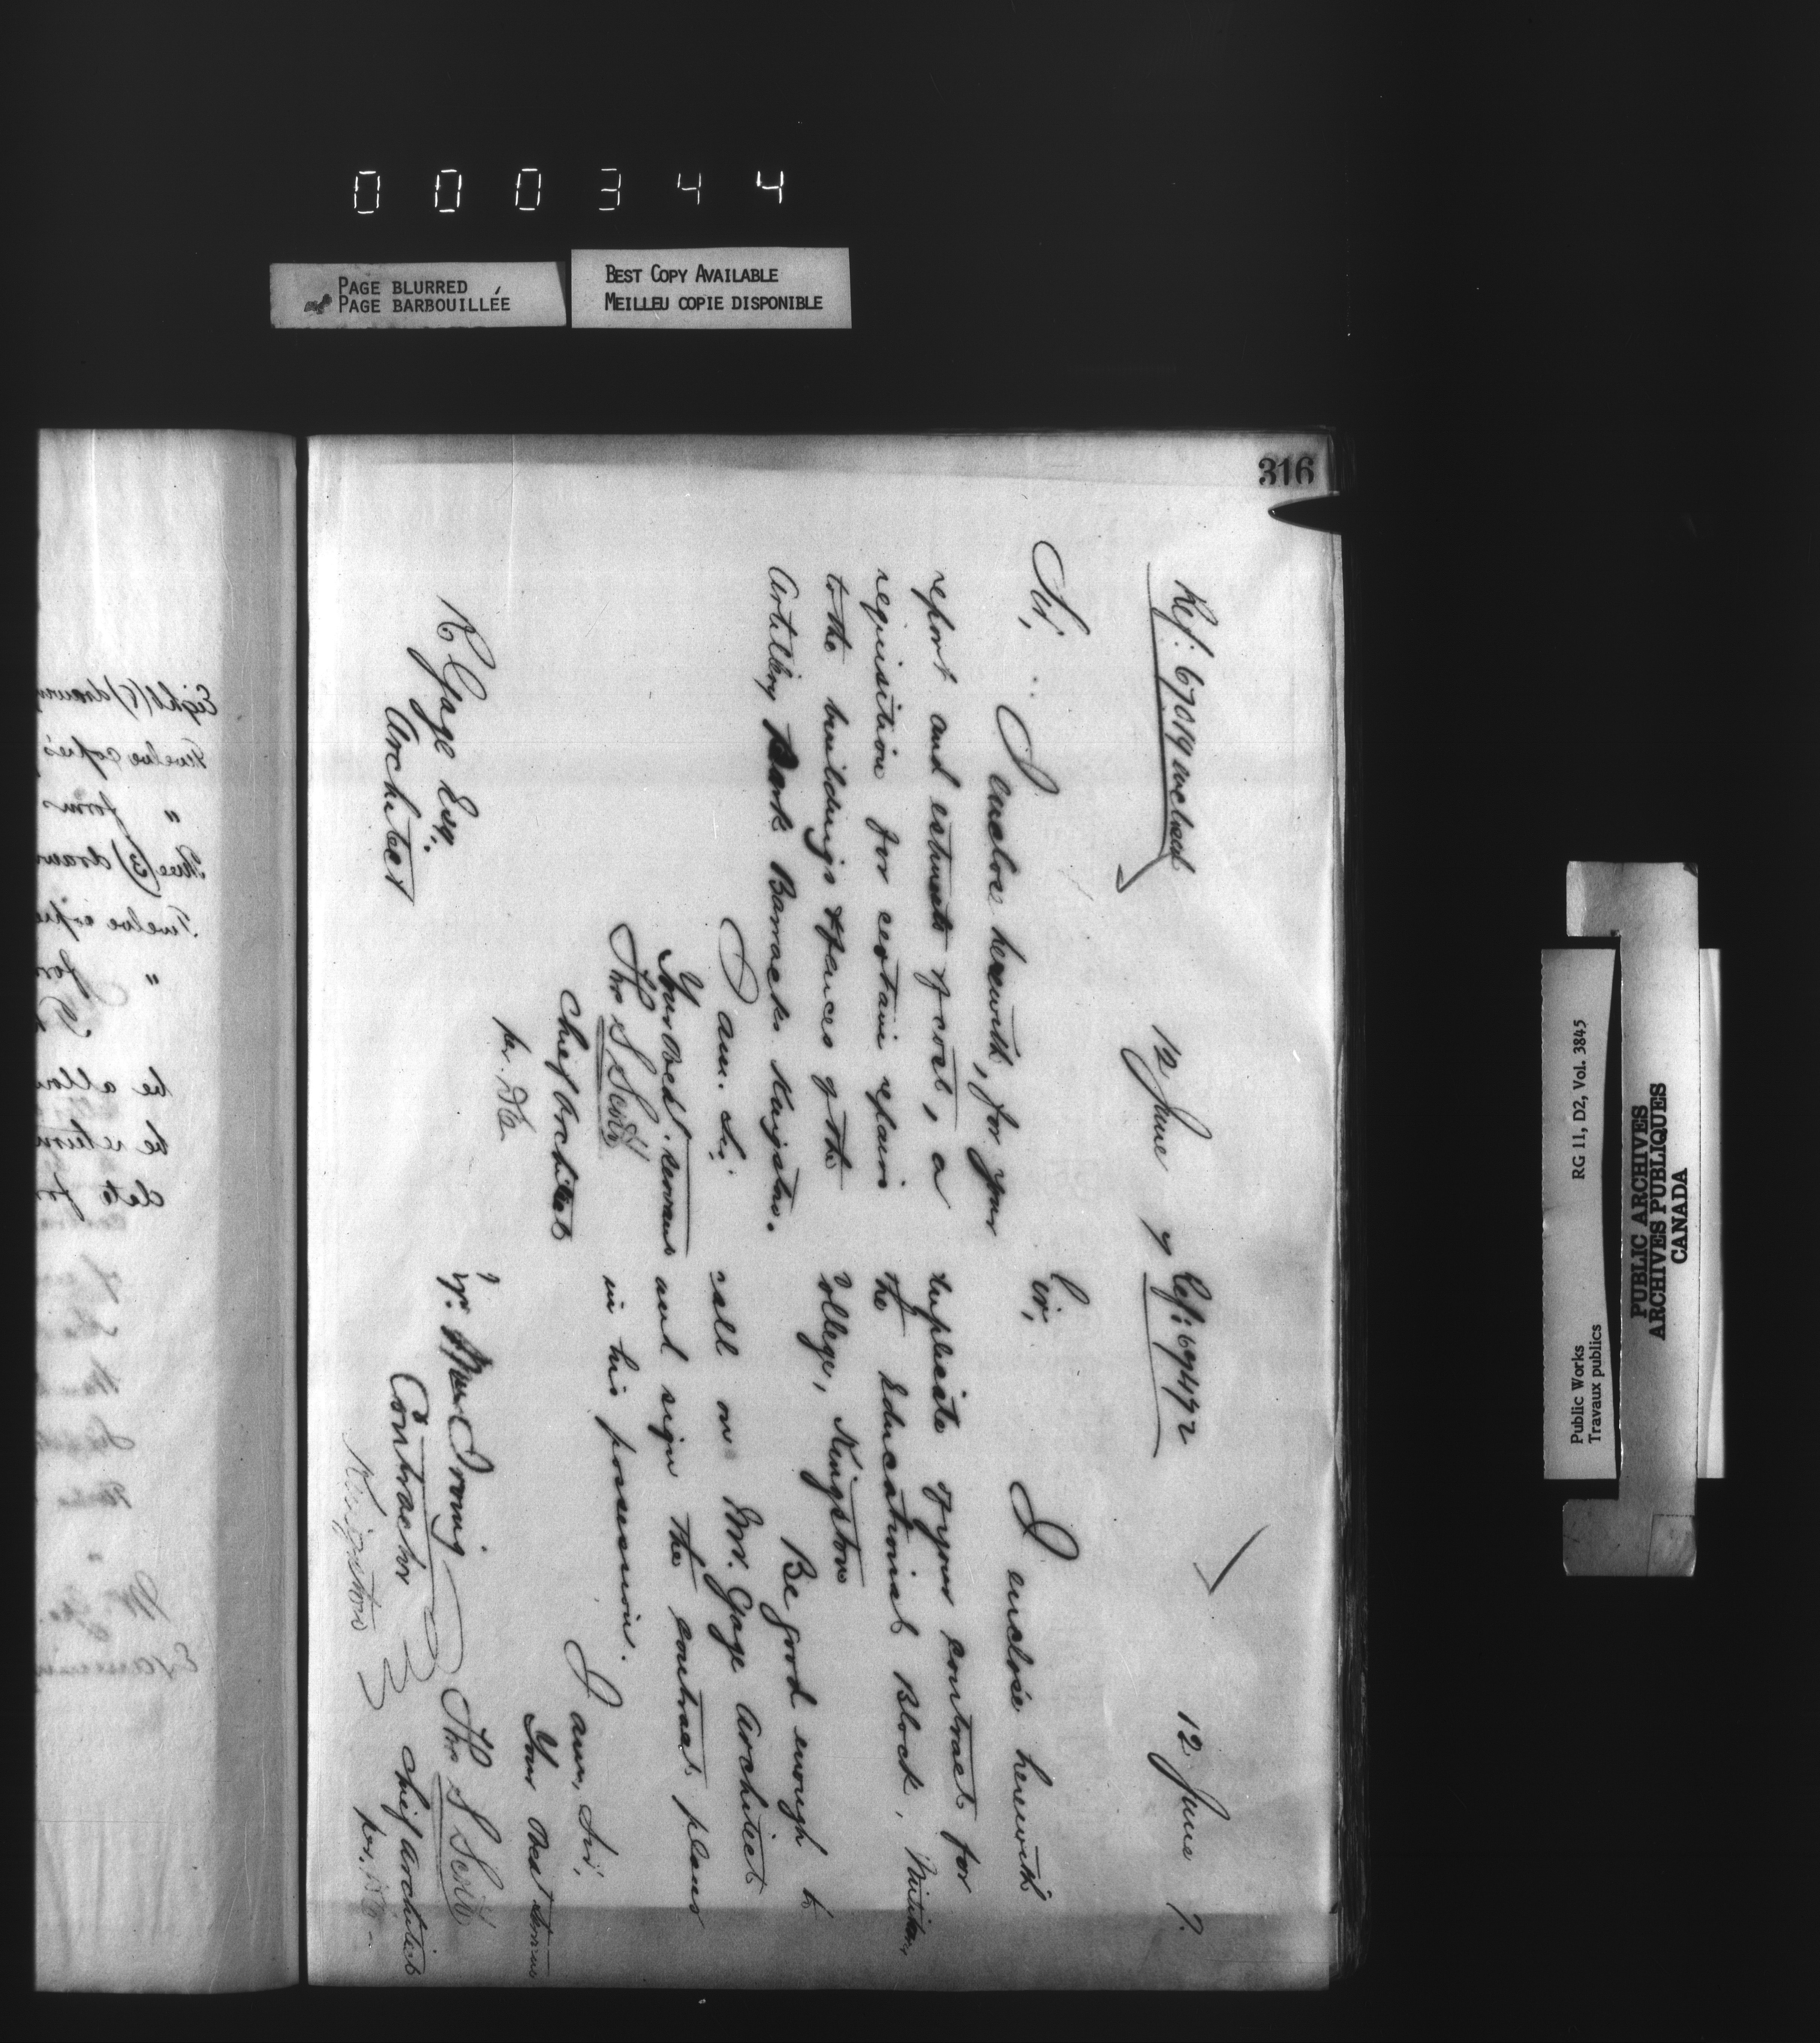 000344
PAGE BLURRED
PAGE BARBOUILLÉE
BEST COPY AVAILABLE
MEILLEU COPIE DISPONIBLE
316
Ref: 67019 inclosed
12 June 7
Sir,
I enclose herewith, for your
report and estimate of cost, a
requisition for certain repairs
to the buildings & fences of the
Artillery Park Barracks Kingston.
I am. Sir
Your Obedt. servant
Thos S Scott
Chief Architect
per.
R Gage Esq.
Architect
Ref: 69492
12 June 7.
Sir,
I enclose herewith
duplicate of your contract for
the Educational Block, Military
College, Kingston
Be good enough to
call on Mr. Gage Architect
and sign the contract plans
in his possession.
I am, Sir,
Your Obedt servant
Thos S Scott
Chief Architect
per.
Irving
Contractor
Kingston
Eight (8)
Twelve copies
" form
Three (3)
Twelve
"
be
be return
date for
PUBLIC ARCHIVES
ARCHIVES PUBLIQUES
CANADA
Public Works
Travaux publics
RG 11, D2, Vol. 3845